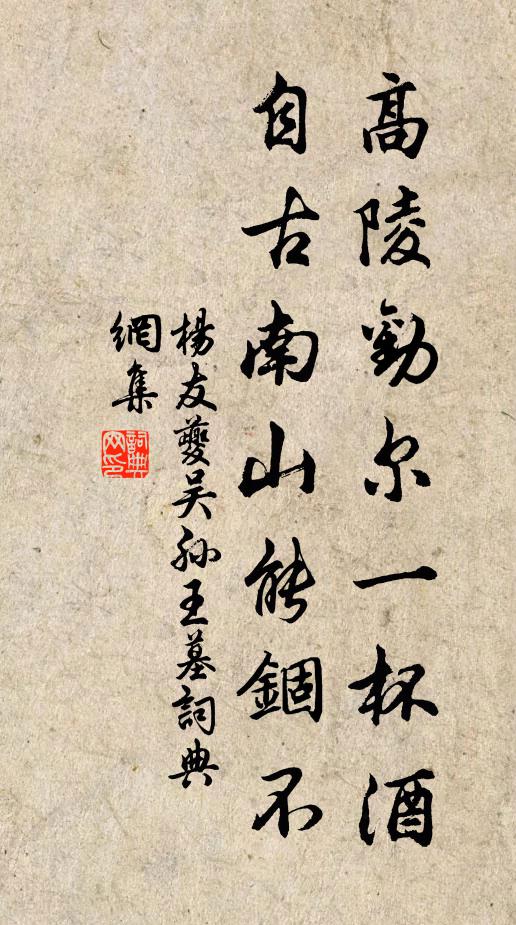 高陵勸尔一杯酒
自古南山能錮不
楊友夔吴孙王墓詞典
網集
詞典
网印